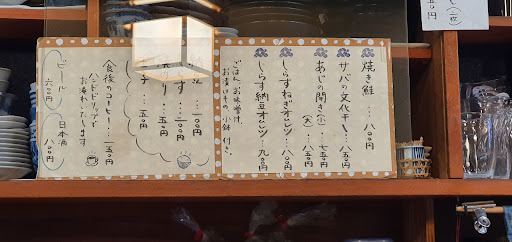 焼き鮭…八〇〇円
サバの文化干し…八五〇円
あじの開き(小)…七五〇円
(大)…八五〇円
しらすねぎオムレツ…八〇〇円
しらす納豆オムレツ…九〇〇円
ごはん、お味噌汁、
お漬けもの、小鉢付き。
一〇〇円
らす…二〇〇円
一五〇円
子…一五〇円
食後のコーヒー…一五〇円
ハンドドリップで
お淹れいたします
ビール
六〇〇円
日本酒
八〇〇円
五〇円